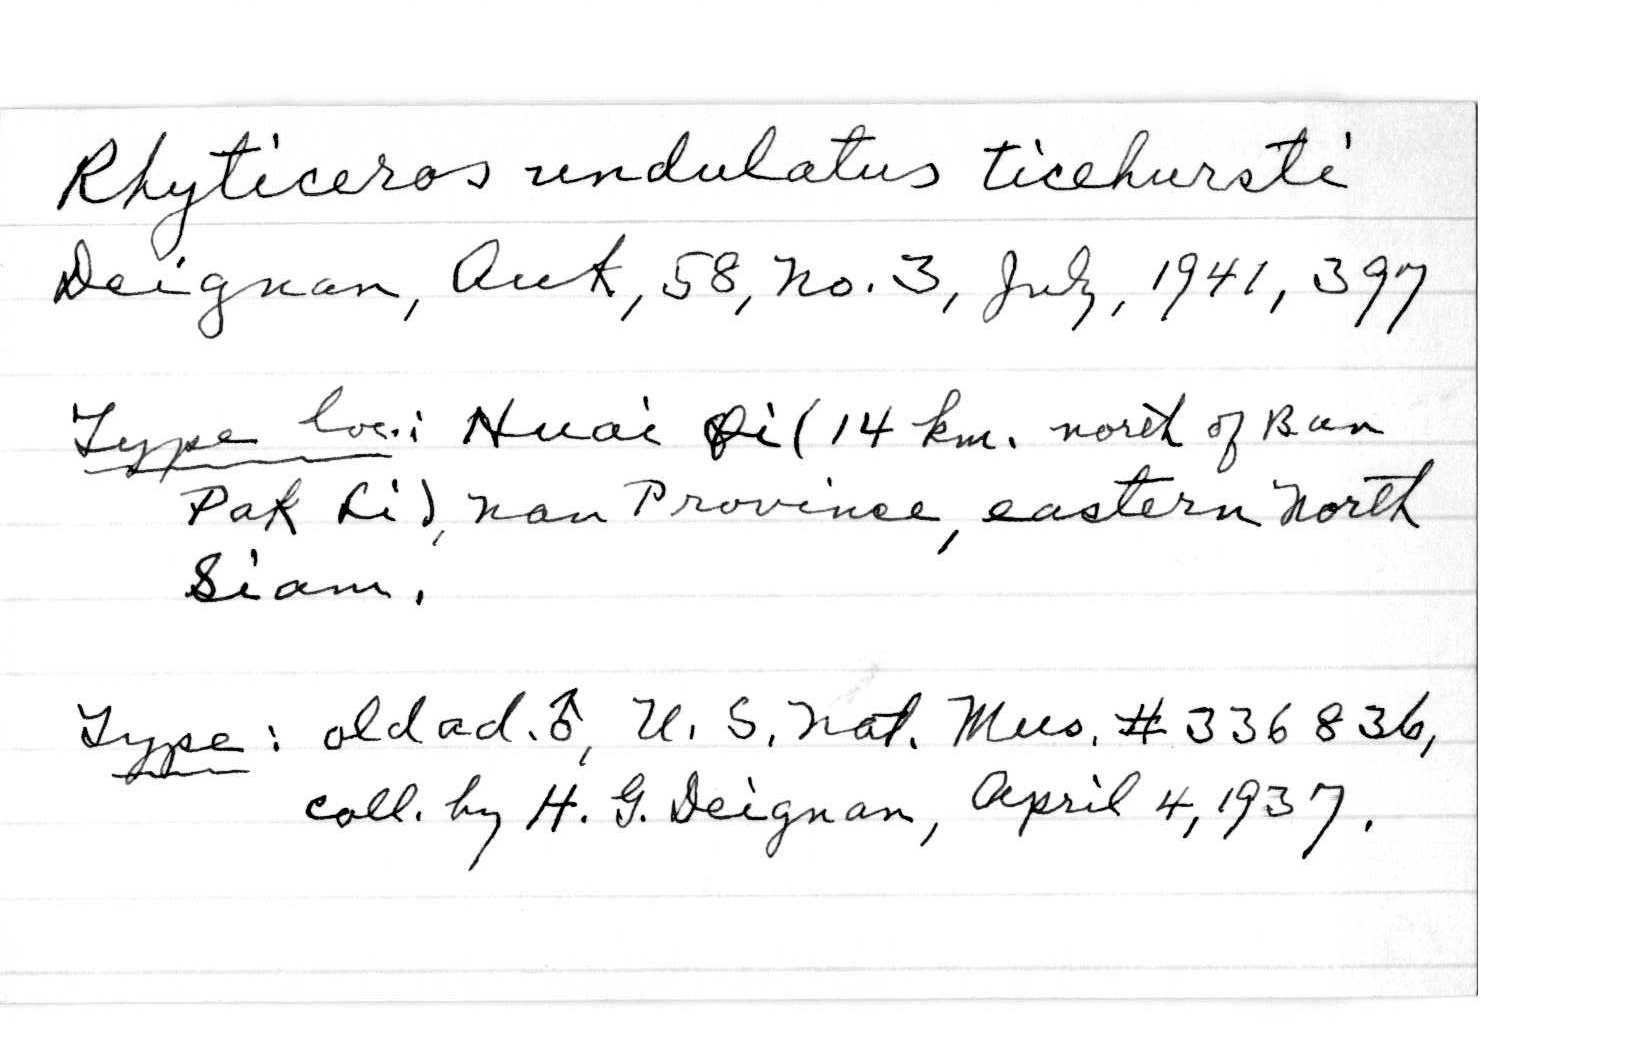 Rhyticeros undulatus ticehursti
Deignan, Auk, 58, No. 3, July, 1941, 397
Type loc.: Huai Pi (14 km. north of Ban
Pak Li), Nan Province, eastern North
Siam.
Type: old ad. ♂, U. S. Nat. Mus. # 336836,
coll. by H. G. Deignan, April 4, 1937.